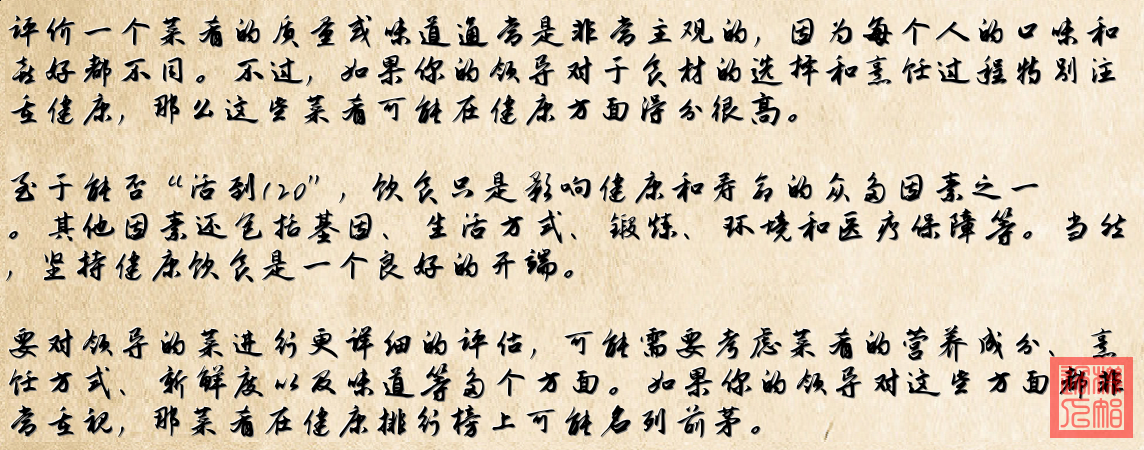 评价一个菜肴的质量或味道通常是非常主观的，因为每个人的口味和
喜好都不同。不过，如果你的领导对于食材的选择和烹饪过程特别注
重健康，那么这些菜肴可能在健康方面得分很高。
至于能否“活到120”，饮食只是影响健康和寿命的众多因素之一
。其他因素还包括基因、生活方式、锻炼、环境和医疗保障等。当然
，坚持健康饮食是一个良好的开端。
要对领导的菜进行更详细的评估，可能需要考虑菜肴的营养成分、烹
饪方式、新鲜度以及味道等多个方面。如果你的领导对这些方面都非
常重视，那菜肴在健康排行榜上可能名列前茅。